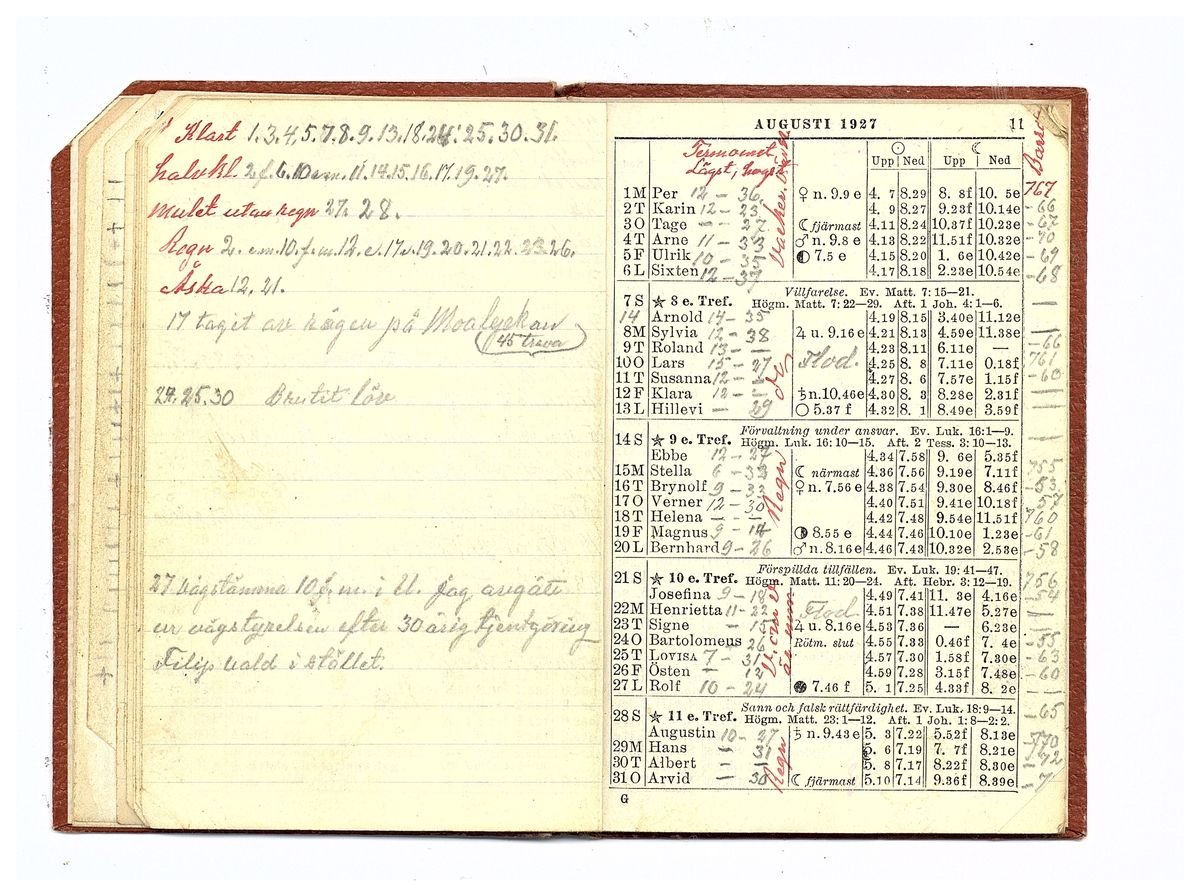 Klart 1.3.4.5.7.8.9.13.18.24.25.30.31.
halvkl. 2 f. 6. 10 e.m. 11.14.15.16.17.19.27.
mulet utan regn 27. 28.
Regn 2. e.m. 10. f.m. 12. e. 17. 19. 20. 21. 22. 23. 26.
Åska 12. 21.
17 tagit av rågen på Moalyckan
45 trava
24. 25. 30 Brutit löv
27 Vägstämma 10 f. m. i U. Jag avgått
ur vägstyrelsen efter 30 årig tjenstgöring
Filip vald i stället.
AUGUSTI 1927 11
Termomet. Barom
Lägst, högst
Upp Ned Upp Ned
1 M Per 12 – 36 ♀ n. 9.9 e 4. 7 8.29 8. 8f 10. 5e 767
2 T Karin 12 – 23 4. 9 8.27 9.23f 10.14e – 66
3 O Tage – – 27 ☾ fjärmast 4.11 8.24 10.37f 10.23e – 67
4 T Arne 11 – 33 ♂ n. 9.8 e 4.13 8.22 11.51f 10.32e – 70
5 F Ulrik 10 – 35 ◐ 7.5 e 4.15 8.20 1. 6e 10.42e – 69
6 L Sixten 12 – 37 4.17 8.18 2.23e 10.54e – 68
Villfarelse. Ev. Matt. 7: 15—21.
7 S ☆ 8 e. Tref. Högm. Matt. 7: 22—29. Aft. 1 Joh. 4: 1—6. —
14 Arnold 14 – 35 4.19 8.15 3.40e 11.12e
8 M Sylvia 12 – 38 ♃ u. 9.16 e 4.21 8.13 4.59e 11.38e —
9 T Roland 13 – – 4.23 8.11 6.11e — – 66
10 O Lars 15 – 27 Flod. 4.25 8. 8 7.11e 0.18f 761
11 T Susanna 12 – – 4.27 8. 6 7.57e 1.15f – 60
12 F Klara 12 – – ♄ n. 10.46 e 4.30 8. 3 8.28e 2.31f —
13 L Hillevi – 29 ○ 5.37 f 4.32 8. 1 8.49e 3.59f —
Förvaltning under ansvar. Ev. Luk. 16: 1—9.
14 S ☆ 9 e. Tref. Högm. Luk. 16: 10—15. Aft. 2 Tess. 3: 10—13. —
Ebbe 12 – 27 4.34 7.58 9. 6e 5.35f
15 M Stella 6 – 33 ☾ närmast 4.36 7.56 9.19e 7.11f 755
16 T Brynolf 9 – 32 ♀ n. 7.56 e 4.38 7.54 9.30e 8.46f – 53
17 O Verner 12 – 30 4.40 7.51 9.41e 10.18f 57
18 T Helena – – – 4.42 7.48 9.54e 11.51f 760
19 F Magnus 9 – 14 ◑ 8.55 e 4.44 7.46 10.10e 1.23e – 61
20 L Bernhard 9 – 26 ♂ n. 8.16 e 4.46 7.43 10.32e 2.53e – 58
Förspillda tillfällen. Ev. Luk. 19: 41—47.
21 S ☆ 10 e. Tref. Högm. Matt. 11: 20—24. Aft. Hebr. 3: 12—19. 756
Josefina 9 – 18 4.49 7.41 11. 3e 4.16e – 54
22 M Henrietta 11 – 22 Flod 4.51 7.38 11.47e 5.27e —
23 T Signe – 15 ♃ u. 8.16 e 4.53 7.36 — 6.23e —
24 O Bartolomeus 26 Rötm. slut 4.55 7.33 0.46f 7. 4e – 55
25 T LOVISA 7 – 31 4.57 7.30 1.58f 7.30e – 63
26 F Östen – 12 4.59 7.28 3.15f 7.48e – 60
27 L Rolf 10 – 24 ● 7.46 f 5. 1 7.25 4.33f 8. 2e —
Sann och falsk rättfärdighet. Ev. Luk. 18: 9—14.
28 S ☆ 11 e. Tref. Högm. Matt. 23: 1—12. Aft. 1 Joh. 1: 8—2: 2. – 65
Augustin 10 – 27 ♄ n. 9.43 e 5. 3 7.22 5.52f 8.13e
29 M Hans – 31 5. 6 7.19 7. 7f 8.21e – 770
30 T Albert – – 5. 8 7.17 8.22f 8.30e – 72
31 O Arvid – 30 ☾ fjärmast 5.10 7.14 9.36f 8.39e – 7
G
Vacker
do
Regn
Regn